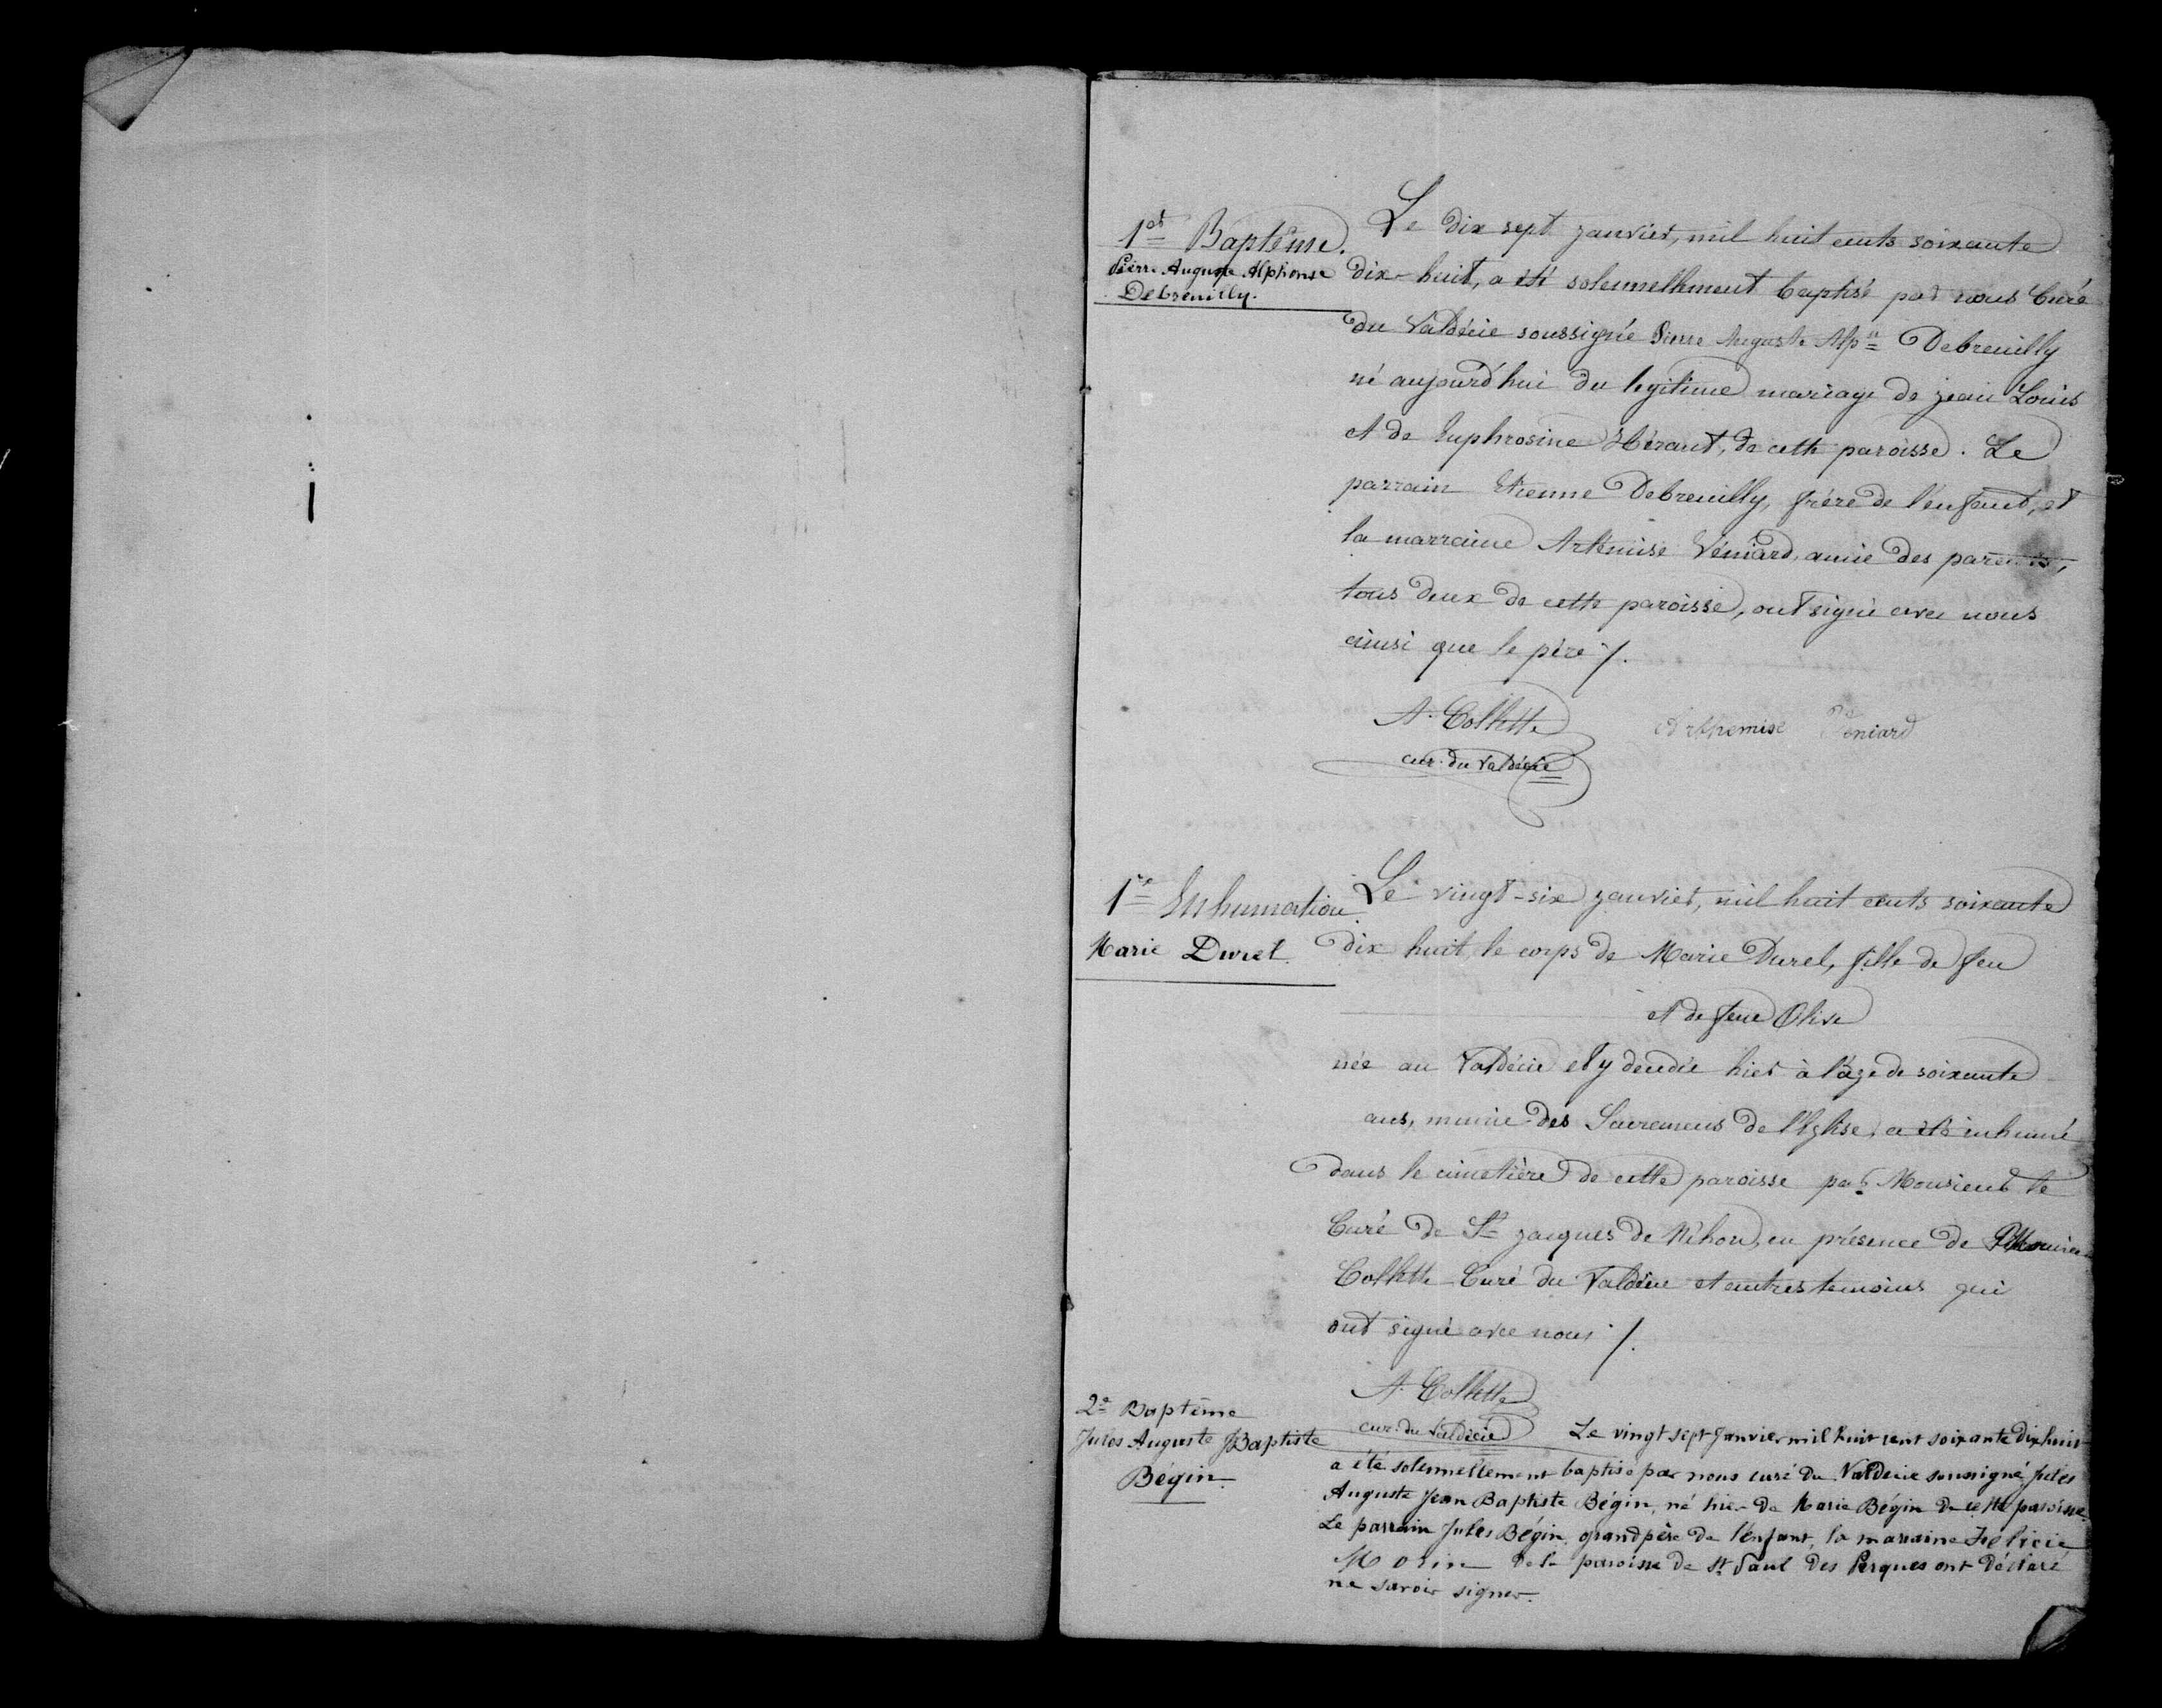 1er Baptême.
Pierre Auguste Alphonse
Debreuilly.
Le dix sept janvier, mil huit cents soixante
dix-huit, a été solennellement baptisé par nous Curé
du Valdécie soussigné Pierre Auguste Alp.se Debreuilly
né aujourd'hui du legitime mariage de jean Louis
et de Euphrosine Héraut, de cette paroisse. Le
parrain Etienne Debreuilly, frère de l'enfant, et
la marraine Artémise Véniard, amie des parents,
tous deux de cette paroisse, ont signé avec nous
ainsi que le père /.
A. Collette
cur. du Valdécie
Arthemise Véniard
1re Inhumation
Marie Durel.
Le vingt-six janvier, mil huit cents soixante
dix huit, le corps de Marie Durel, fille de feu
et de feue Olive
née au Valdécie et y décédée hier à l'âge de soixante
ans, munie des Sacremens de l'Eglise, a été inhumé
dans le cimetière de cette paroisse par Monsieur le
Curé de St jacques de Néhou, en présence de
Collette Curé du Valdécie et autres temoins qui
ont signé avec nous /.
A. Collette
cur. du Valdécie
2e Baptême
Jules Auguste JBaptiste
Bégin.
Le vingt sept janvier mil huit cent soixante dix huit
a été solennellement baptisé par nous curé du Valdécie soussigné Jules
Auguste Jean Baptiste Bégin, né hier de Marie Bégin de cette paroisse.
Le parrain Jules Bégin, grand père de l'enfant, la marraine Félicie
Morin de la paroisse de St Paul des Perques ont déclaré
ne savoir signer.